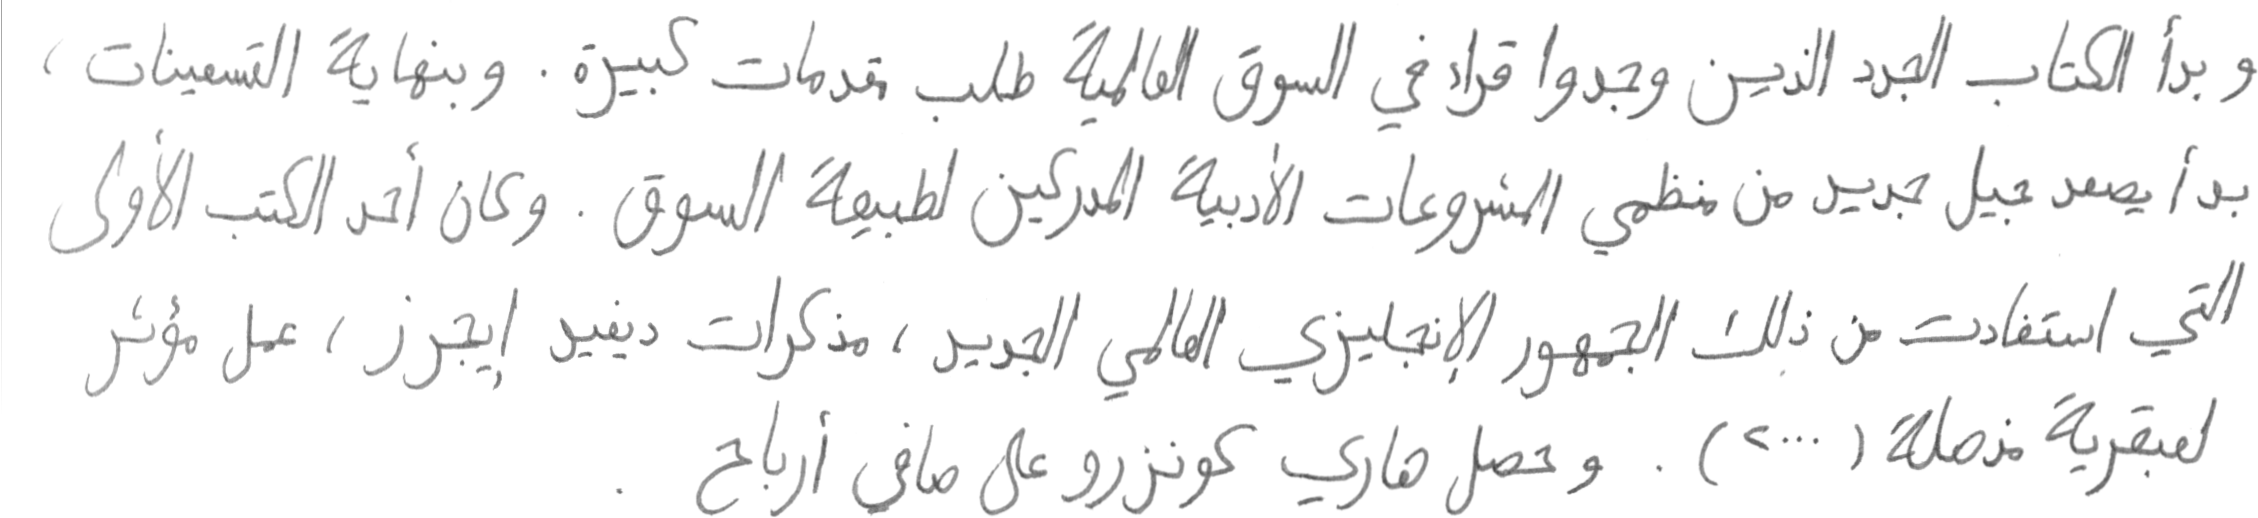 وبدأ الكتاب الجدد الذين وجدوا قراء في السوق العالمية طلب مقدمات كبيرة . وبنهاية التسعينات ،
بدأ يصعد جيل جديد من منظمي المشروعات الأدبية المدركين لطبيعة السوق . وكان أحد الكتب الأولى
التي استفادت من ذلك الجمهور الإنجليزي العالمي الجديد ، مذكرات ديفيد إيجرز ، عمل مؤثر
لعبقرية مذهلة (٢٠٠٠) . وحصل هاري كونزرو على صافي أرباح .